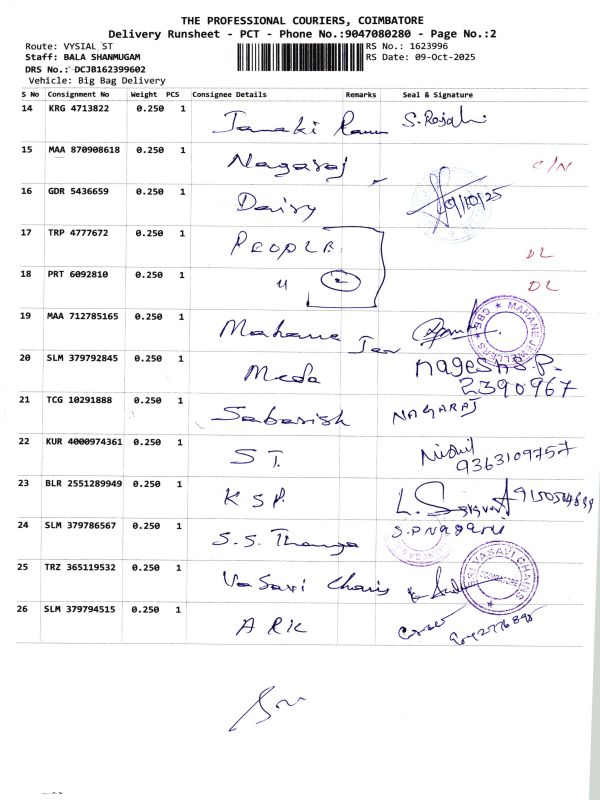 THE PROFESSIONAL COURIERS, COIMBATORE
Delivery Runsheet - PCT - Phone No.:9047080280 - Page No.:2
Route: VYSIAL ST RS No.: 1623996
Staff: BALA SHANMUGAM RS Date: 09-Oct-2025
DRS No.: DCJB162399602
Vehicle: Big Bag Delivery
S No Consignment No Weight PCS Consignee Details Remarks Seal & Signature
14 KRG 4713822 0.250 1 Janaki Ram S. Rajabi
15 MAA 870908618 0.250 1 Nagaraj C/N
16 GDR 5436659 0.250 1 Daisy 9/10/25
17 TRP 4777672 0.250 1 PEOPLE DL
18 PRT 6092810 0.250 1 u 2 DL
19 MAA 712785165 0.250 1 Mahame Jew MAHAME JEWELLERS CBE
20 SLM 379792845 0.250 1 Meda nagesh S.P.
2390967
21 TCG 10291888 0.250 1 Sabarish NAGARAJ
22 KUR 4000974361 0.250 1 S T.
9363109757
23 BLR 2551289949 0.250 1 K S P.
24 SLM 379786567 0.250 1 S.S. Thanga S.P nagaraj
25 TRZ 365119532 0.250 1 Vasavi Chains VASAVI CHAINS COIMBATORE
26 SLM 379794515 0.250 1 A R K